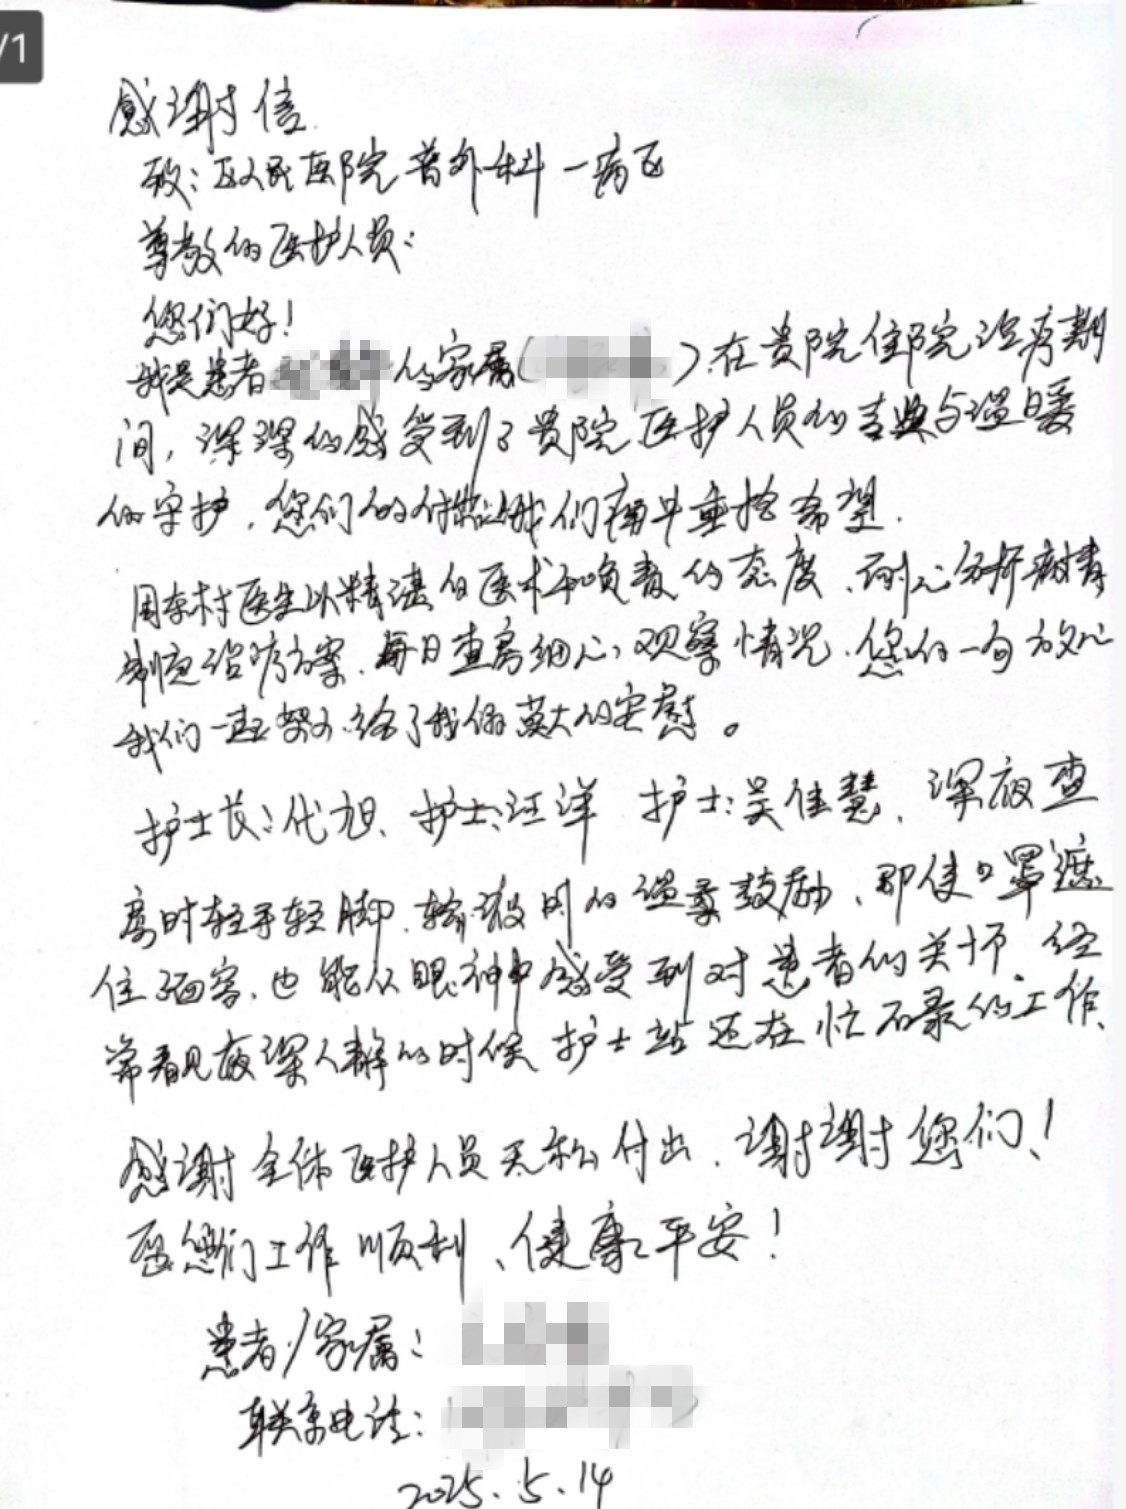 /1
感谢信
致：区人民医院普外科一病区
尊敬的医护人员：
您们好！
我是患者 的家属（ ）.在贵院住院治疗期
间，深深的感受到了贵院医护人员的专业与温暖
的守护.您们的付出让我们痛中重拾希望.
周东村医生以精湛的医术和负责的态度、耐心分析病情
制定治疗方案.每日查房细心观察情况.您的一句放心
我们一直努力.给了我们莫大的安慰。
护士长：代旭、护士：汪洋 护士：吴佳慧、深夜查
房时轻手轻脚.输液时的温柔鼓励、即使口罩遮
住了面容、也能从眼神中感受到对患者的关怀.经
常看见夜深人静的时候护士站还在忙碌的工作、
感谢全体医护人员无私付出.谢谢您们！
愿您们工作顺利、健康平安！
患者/家属：
联系电话：
2025.5.14